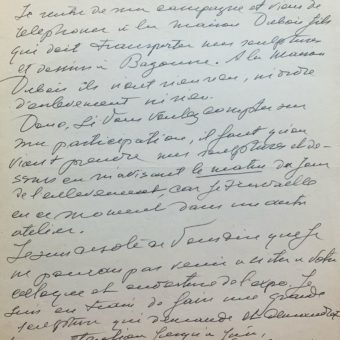 Je rentre de ma campagne et viens de
téléphoner à la maison Dubois fils
qui doit transporter mes sculptures
et dessins à Bayonne. A la maison
Dubois ils n'ont rien reçu, ni ordre
d'enlèvement ni rien.
Donc, si vous voulez compter sur
ma participation, il faut qu'on
vient prendre mes sculptures et des-
sins en m'avisant le matin du jour
de l'enlèvement, car je travaille
en ce moment dans un autre
atelier.
Je suis désolé de vous dire que je
ne pourrai pas venir assister à votre
colloque et ouverture de l'expo. Je
suis en train de faire une grande
sculpture qui demande et demandera